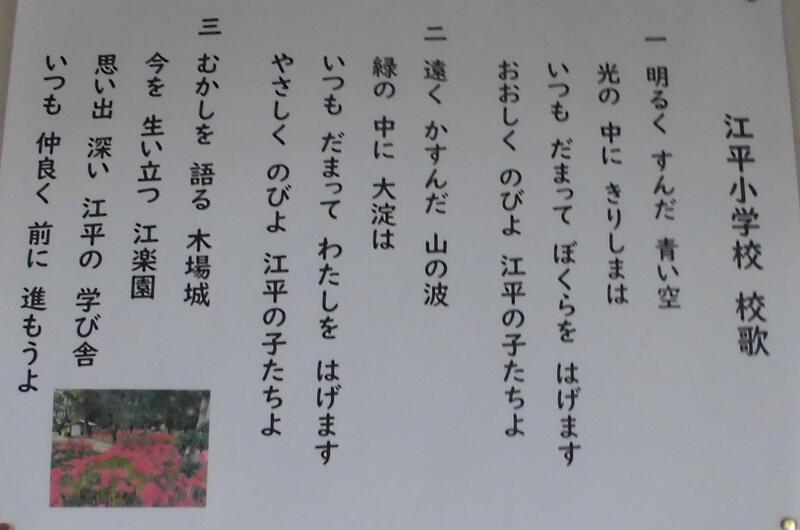 江平小学校 校歌
一 明るく すんだ 青い空
光の 中に きりしまは
いつも だまって ぼくらを はげます
おおしく のびよ 江平の子たちよ
二 遠く かすんだ 山の波
緑の 中に 大淀は
いつも だまって わたしを はげます
やさしく のびよ 江平の子たちよ
三 むかしを 語る 木場城
今を 生い立つ 江楽園
思い出 深い 江平の 学び舎
いつも 仲良く 前に 進もうよ